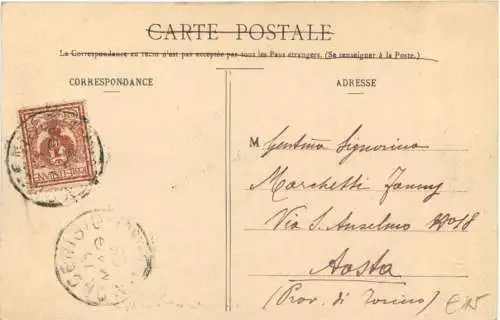 CARTE POSTALE
La Correspondance au recto n'est pas acceptée par tous les Pays étrangers. (Se renseigner à la Poste.)
CORRESPONDANCE
ADRESSE
M Gentma Signorina
Marchetti Fanny
Via S. Anselmo N° 18
Aosta
(Prov. di Torino)